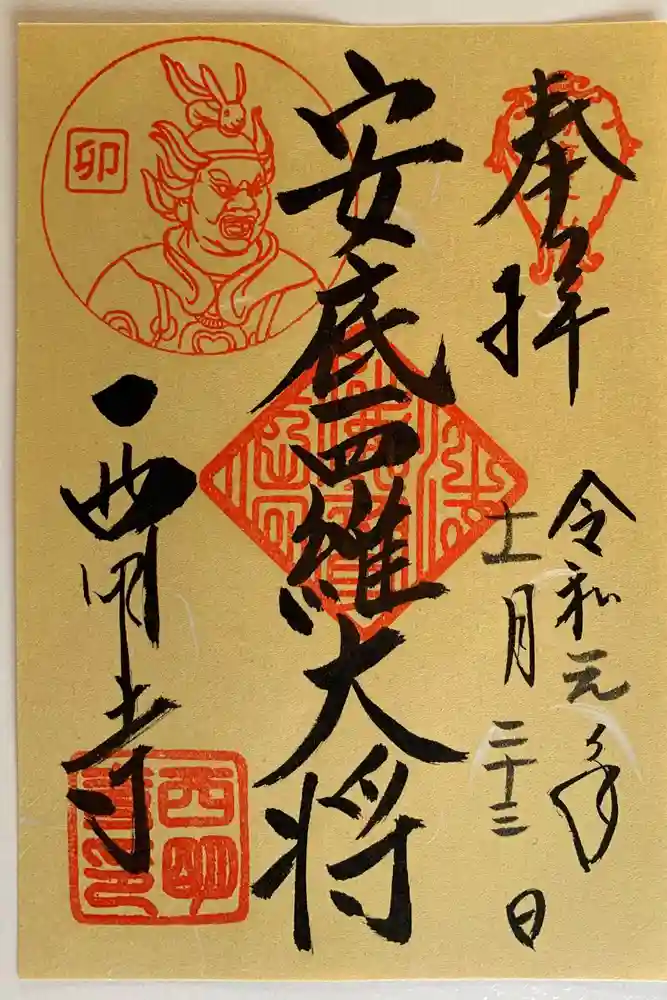 奉拝
令和元年
十一月二十三日
安底羅大将
卯
西明寺
西明
寺印